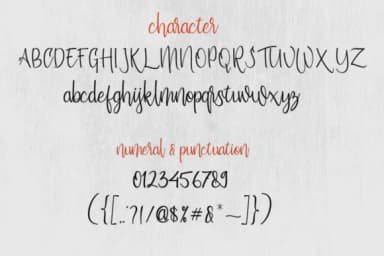 character
ABCDEFGHIJKLMNOPQRSTUVWXYZ
abcdefghijklmnopqrstuvwxyz
numeral & punctuation
0123456789
({[..:?!/@$%#&*~]})